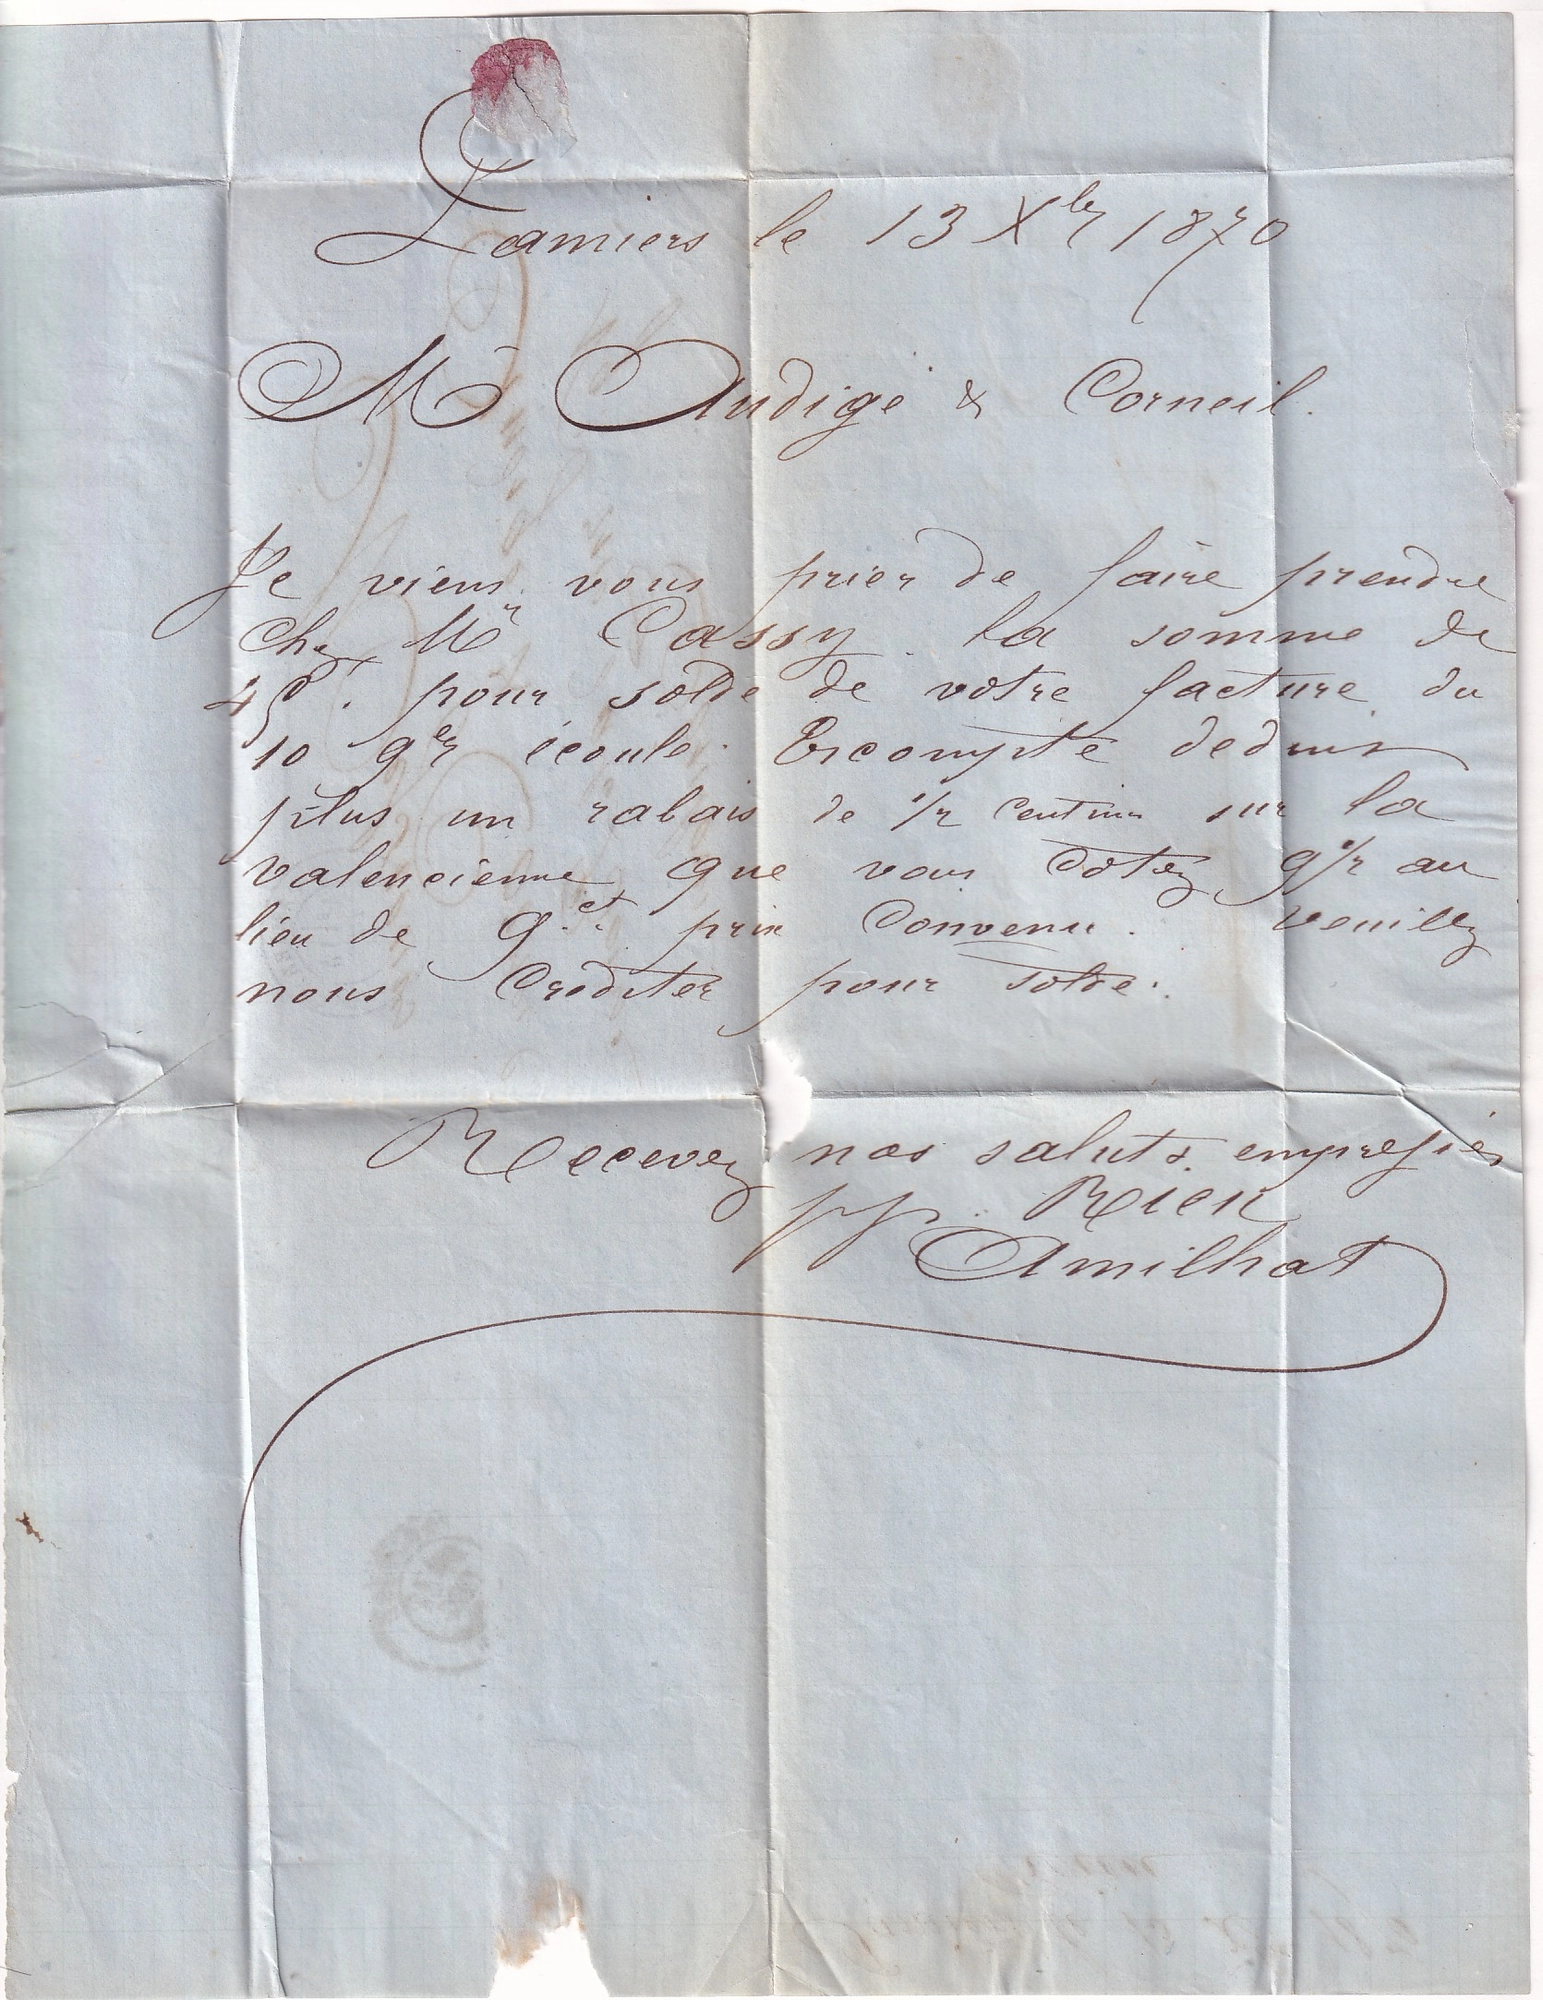 Pamiers le 13 Xbr 1870
Mr Audigé & Corneil.
Je viens vous prier de faire prendre
Chez Mr Cassy la somme de
45f. pour solde de votre facture du
10 9br écoulé. Escompte deduit
plus un rabais de 1/2 centime sur la
valencienne que vous cotez 9 1/2 au
lieu de 9ct prix convenu. Veuillez
nous créditer pour solde.
Recevez nos saluts empressés
pp.
Amilhat